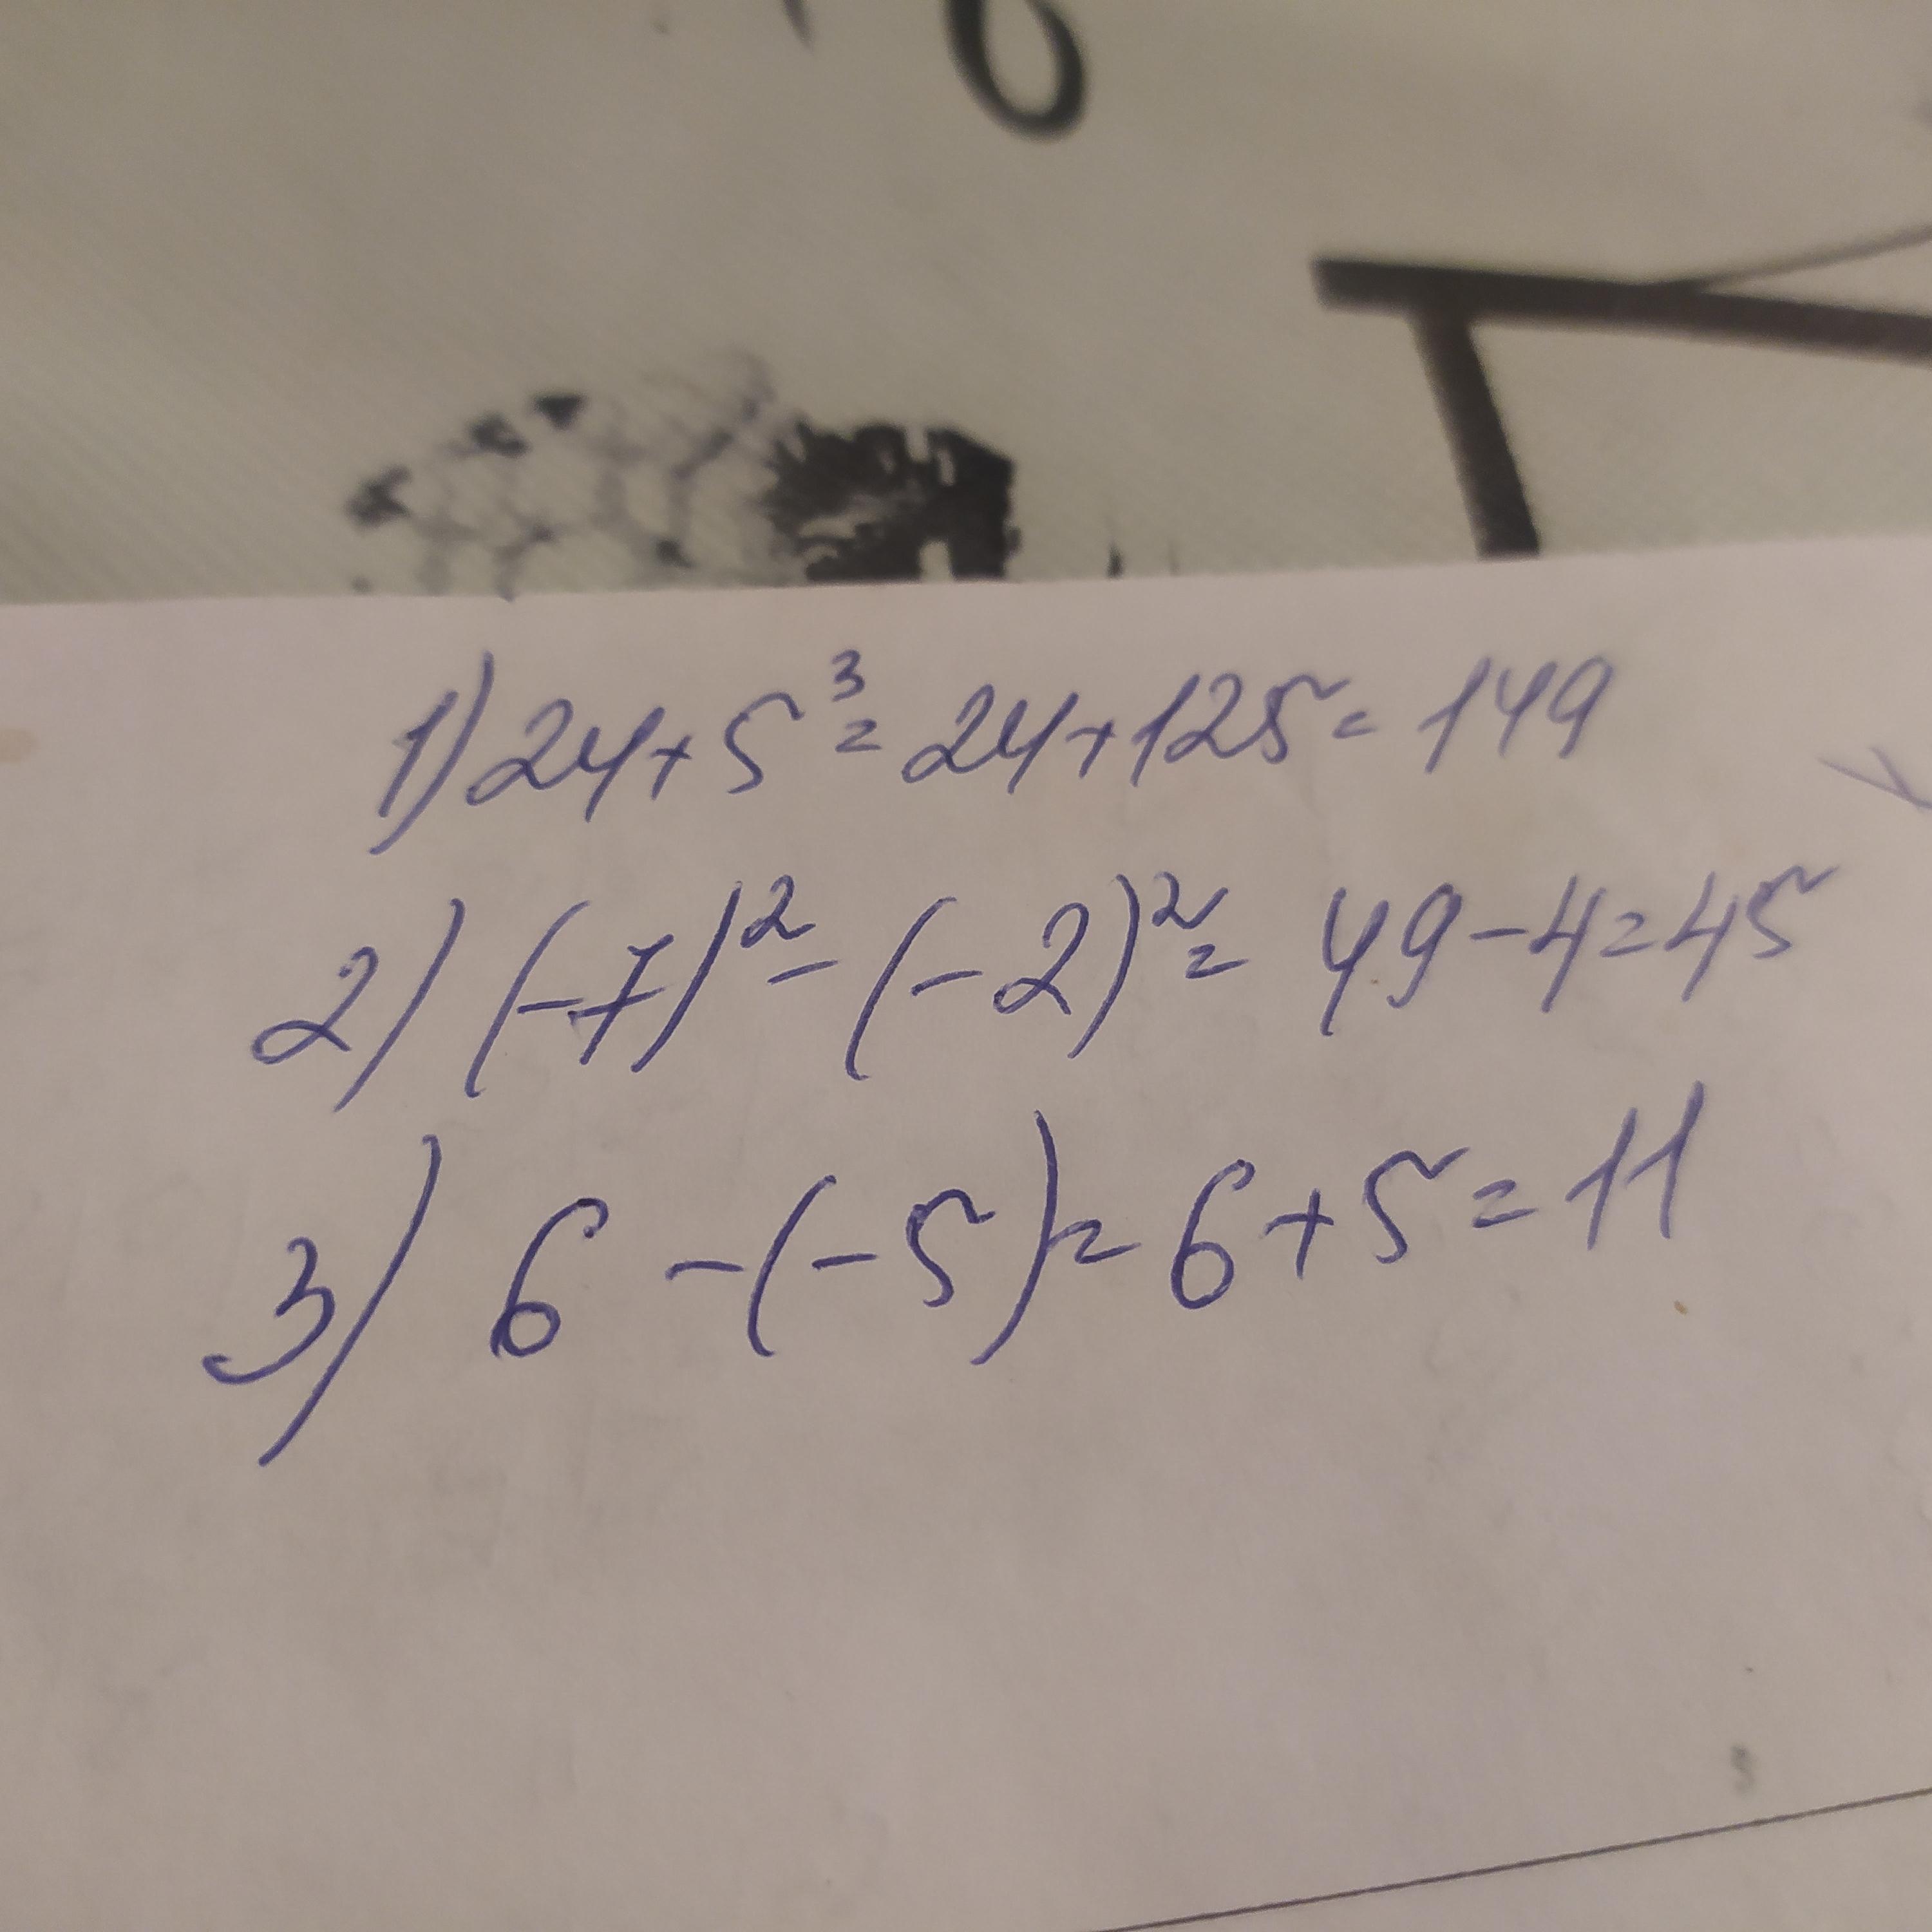 1) 24+5³=24+125=149
2) (-7)²-(-2)²=49-4=45
3) 6-(-5)=6+5=11